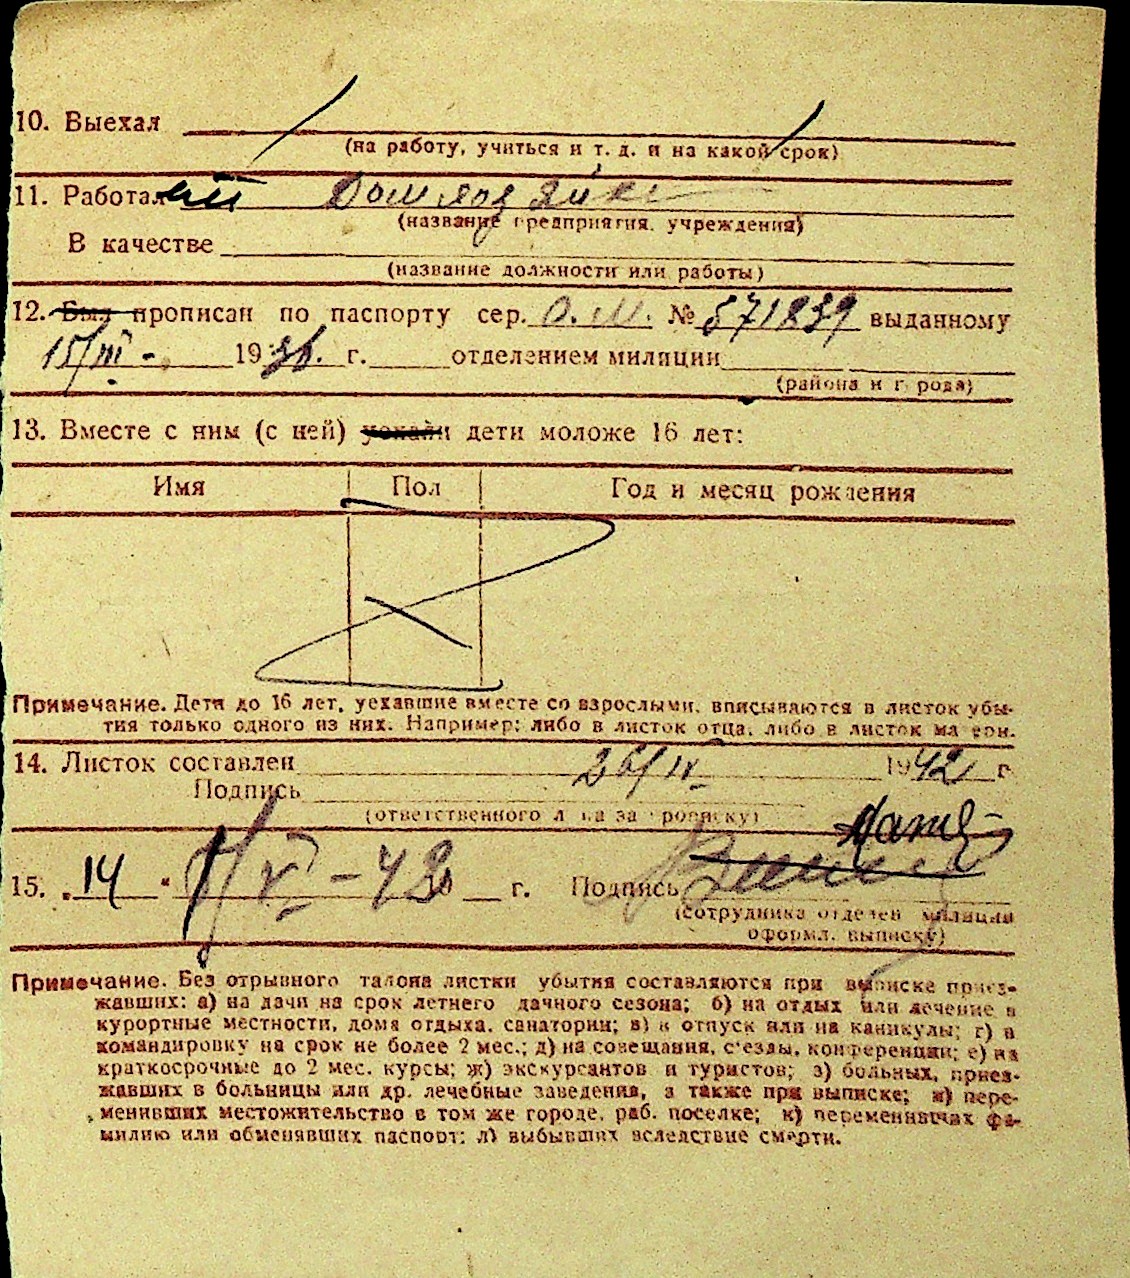 10. Выехал
(на работу, учиться и т. д. и на какой срок)
11. Работал Домхозяйка
(название предприятия, учреждения)
В качестве
(название должности или работы)
12. Был прописан по паспорту сер. О.М. № 571239 выданному
15/III - 1936. г. отделением милиции
(района и города)
13. Вместе с ним (с ней) уехали дети моложе 16 лет:
Имя Пол Год и месяц рождения
Примечание. Дети до 16 лет, уехавшие вместе со взрослыми, вписываются в листок убы-
тия только одного из них. Например: либо в листок отца, либо в листок матери.
14. Листок составлен 26/IV 1942 г.
Подпись
(ответственного лица за прописку)
15. „14 “ VI - 42 г. Подпись
(сотрудника отделен. милиции
оформл. выписку)
Примечание. Без отрывного талона листки убытия составляются при выписке приез-
жавших: а) на дачи на срок летнего дачного сезона; б) на отдых или лечение в
курортные местности, дома отдыха, санатории; в) в отпуск или на каникулы; г) в
командировку на срок не более 2 мес.; д) на совещания, с'езды, конференции; е) на
краткосрочные до 2 мес. курсы; ж) экскурсантов и туристов; з) больных, приез-
жавших в больницы или др. лечебные заведения, а также при выписке; и) пере-
менивших местожительство в том же городе, раб. поселке; к) переменивших фа-
милию или обменявших паспорт; л) выбывших вследствие смерти.